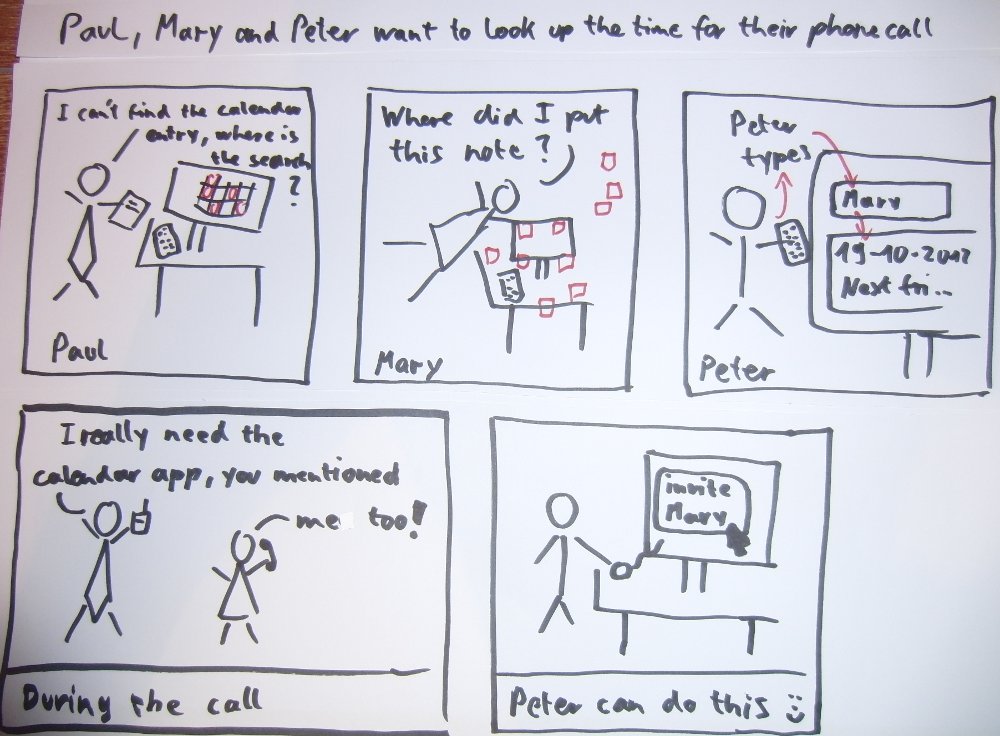 Paul, Mary and Peter want to look up the time for their phone call
I can't find the calendar
entry, where is
the search
?
Paul
Where did I put
this note?
Mary
Peter
types
Mary
19-10-2012
Next fri...
Peter
I really need the
calendar app, you mentioned
me too!
During the call
invite
Mary
Peter can do this :)